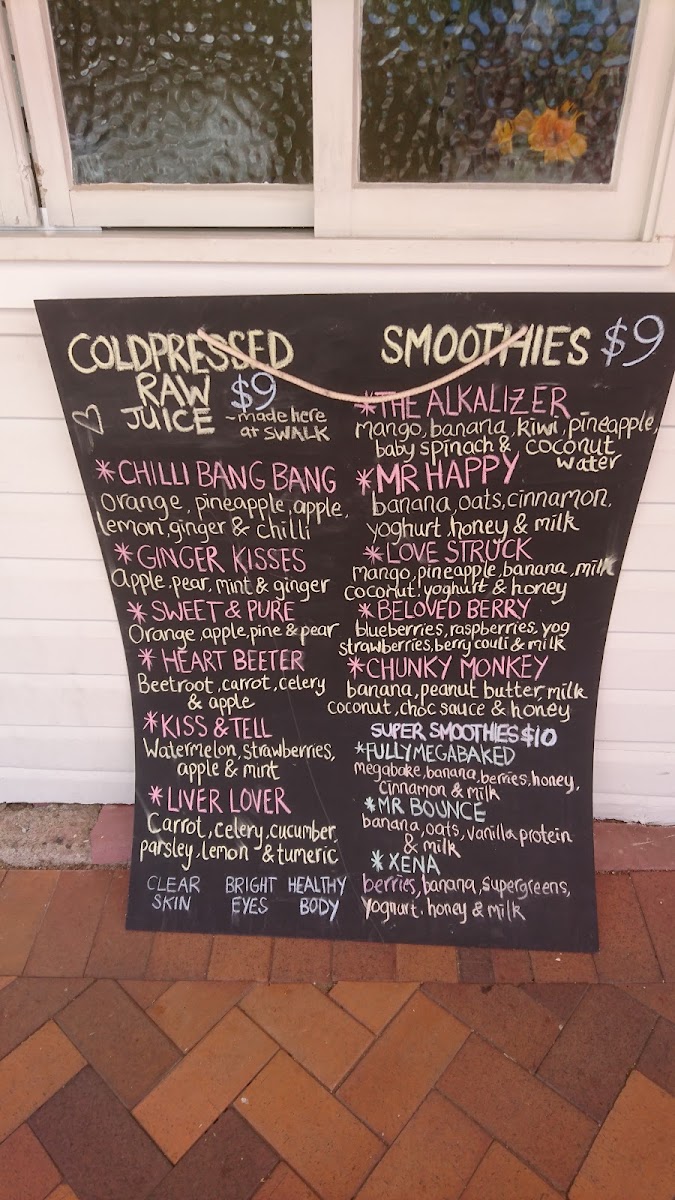 COLDPRESSED
RAW $9
JUICE ~made here
at SWALK
*CHILLI BANG BANG
Orange, pineapple, apple,
lemon, ginger & chilli
*GINGER KISSES
Apple, pear, mint & ginger
*SWEET & PURE
Orange, apple, pine & pear
*HEART BEETER
Beetroot, carrot, celery
& apple
*KISS & TELL
Watermelon, strawberries,
apple & mint
*LIVER LOVER
Carrot, celery, cucumber,
parsley, lemon & tumeric
CLEAR BRIGHT HEALTHY
SKIN EYES BODY
SMOOTHIES $9
*THE ALKALIZER
mango, banana, kiwi, pineapple,
baby spinach & coconut
water
*MR HAPPY
banana, oats, cinnamon,
yoghurt, honey & milk
*LOVE STRUCK
mango, pineapple, banana, milk
coconut, yoghurt & honey
*BELOVED BERRY
blueberries, raspberries, yog
strawberries, berry couli & milk
*CHUNKY MONKEY
banana, peanut butter, milk
coconut, choc sauce & honey
SUPER SMOOTHIES $10
*FULLY MEGABAKED
megabake, banana, berries, honey,
cinnamon & milk
*MR BOUNCE
banana, oats, vanilla protein
& milk
*XENA
berries, banana, supergreens,
yoghurt, honey & milk